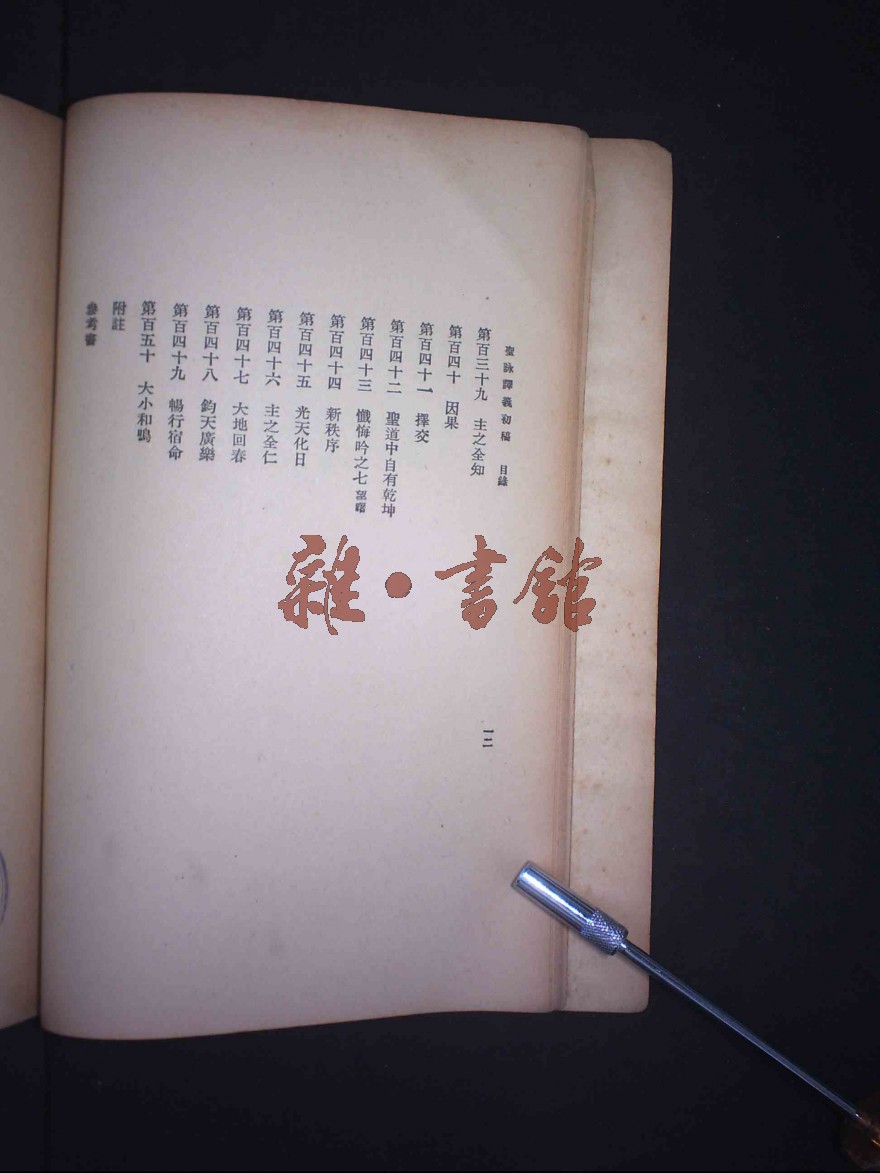 聖詠譯義初稿 目錄
第百三十九 主之全知
第百四十 因果
第百四十一 擇交
第百四十二 聖道中自有乾坤
第百四十三 懺悔吟之七 望曙
第百四十四 新秩序
第百四十五 光天化日
第百四十六 主之全仁
第百四十七 大地回春
第百四十八 鈞天廣樂
第百四十九 暢行宿命
第百五十 大小和鳴
附註
參考書
一二
雜·書館